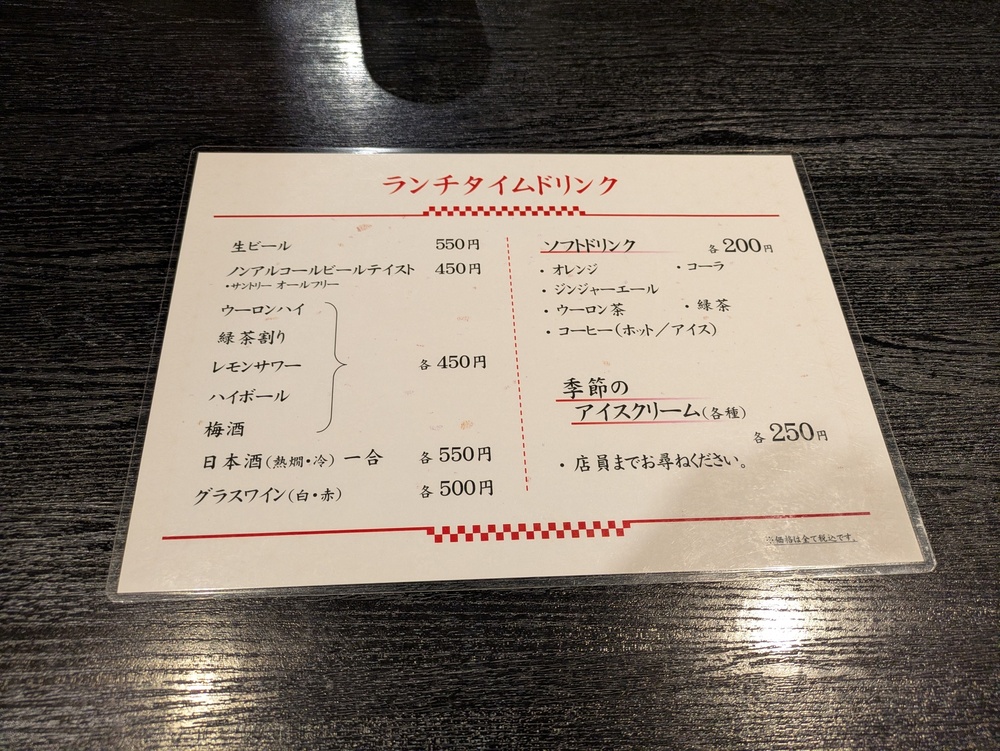 ランチタイムドリンク
生ビール 550円
ノンアルコールビールテイスト 450円
・サントリー オールフリー
ウーロンハイ
緑茶割り
レモンサワー 各450円
ハイボール
梅酒
日本酒(熱燗・冷) 一合 各550円
グラスワイン(白・赤) 各500円
ソフトドリンク 各200円
・オレンジ ・コーラ
・ジンジャーエール
・ウーロン茶 ・緑茶
・コーヒー(ホット/アイス)
季節の
アイスクリーム(各種)
各250円
・店員までお尋ねください。
※価格は全て税込です。